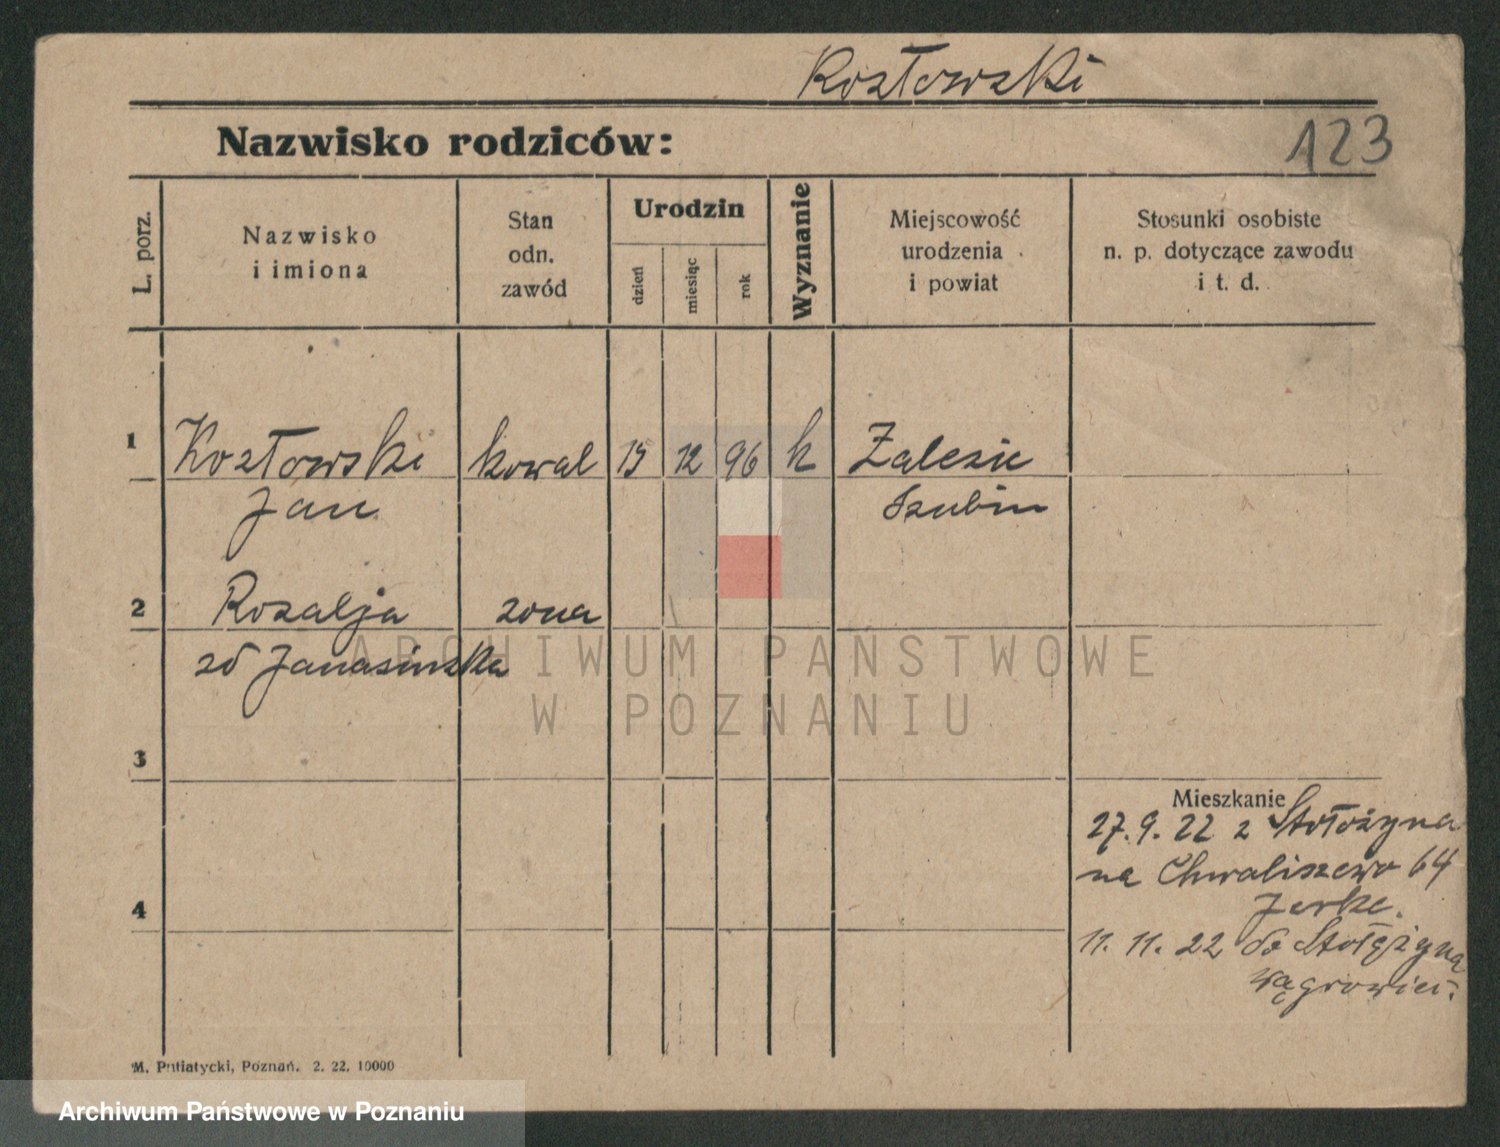 Kozłowski
Nazwisko rodziców:
123
L. porz.
Nazwisko
i imiona
Stan
odn.
zawód
Urodzin
dzień
miesiąc
rok
Wyznanie
Miejscowość
urodzenia
i powiat
Stosunki osobiste
n. p. dotyczące zawodu
i t. d.
1
Kozłowski
kowal
15
12
96
k
Zalesie
Jan
Szubin
2
Rozalja
żona
zd Janasińska
ARCHIWUM PAŃSTWOWE
W POZNANIU
3
Mieszkanie
27. 9. 22 z Stołożyna
na Chwaliszewo 64
4
11. 11. 22 do Stołężyna
Wągrowiec.
M. Putiatycki, Poznań. 2. 22. 10000
Archiwum Państwowe w Poznaniu